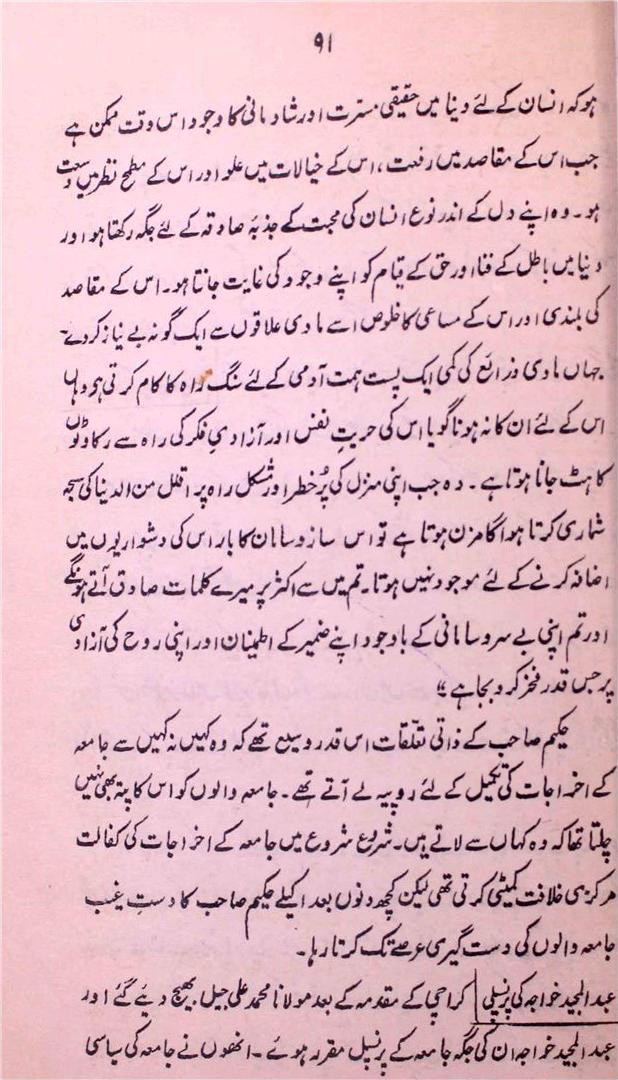 ۹۱
ہو کہ انسان کے لئے دنیا میں حقیقی مسرت اور شادمانی کا وجود اس وقت ممکن ہے
جب اس کے مقاصد میں رفعت، اس کے خیالات میں علو اور اس کے مطمح نظر میں وسعت
ہو۔ وہ اپنے دل کے اندر نوع انسان کی محبت کے جذبۂ صادقہ کے لئے جگہ رکھتا ہو اور
دنیا میں باطل کے فنا اور حق کے قیام کو اپنے وجود کی غایت جانتا ہو۔ اس کے مقاصد
کی بلندی اور اس کے مساعی کا خلوص اسے مادی علاقوں سے ایک گونہ بے نیاز کردے
جہاں مادی ذرائع کی کمی ایک پست ہمت آدمی کے لئے سنگ راہ کا کام کرتی ہو وہاں
اس کے لئے ان کا نہ ہونا گویا اس کی حریتِ نفس اور آزادیِ فکر کی راہ سے رکاوٹوں
کا ہٹ جانا ہوتا ہے۔ وہ جب اپنی منزل کی پُرخطر اور مشکل راہ پر اقلل من الدنیا کی سجہ
شماری کرتا ہوا گامزن ہوتا ہے تو اس سازوسامان کا بار اس کی دشواریوں میں
اضافہ کرنے کے لئے موجود نہیں ہوتا۔ تم میں سے اکثر پر میرے کلمات صادق آتے ہونگے
اور تم اپنی بے سروسامانی کے باوجود اپنے ضمیر کے اطمینان اور اپنی روح کی آزادی
پر جس قدر فخر کرو بجا ہے“
حکیم صاحب کے ذاتی تعلّقات اس قدر وسیع تھے کہ وہ کہیں نہ کہیں سے جامعہ
کے اخراجات کی تکمیل کے لئے روپیہ لے آتے تھے۔ جامعہ والوں کو اس کا پتہ بھی نہیں
چلتا تھا کہ وہ کہاں سے لاتے ہیں۔ شروع شروع میں جامعہ کے اخراجات کی کفالت
مرکزی خلافت کمیٹی کرتی تھی لیکن کچھ دنوں بعد اکیلے حکیم صاحب کا دستِ غیب
جامعہ والوں کی دست گیری عرصے تک کرتا رہا۔
عبدالمجید خواجہ کی پرنسپلی کراچی کے مقدمہ کے بعد مولانا محمد علی جیل بھیج دیئے گئے اور
عبدالمجید خواجہ ان کی جگہ جامعہ کے پرنسپل مقرر ہوئے۔ انھوں نے جامعہ کی سیاسی